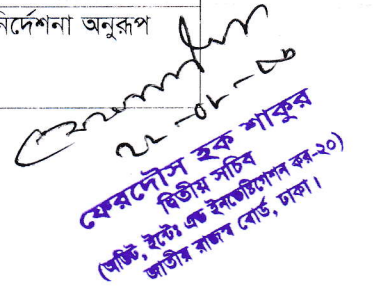 নির্দেশনা অনুরূপ
ফেরদৌস হক শাকুর
দ্বিতীয় সচিব
(অডিট, ইন্টেঃ এন্ড ইনভেষ্টিগেশন কর-২০)
জাতীয় রাজস্ব বোর্ড, ঢাকা।